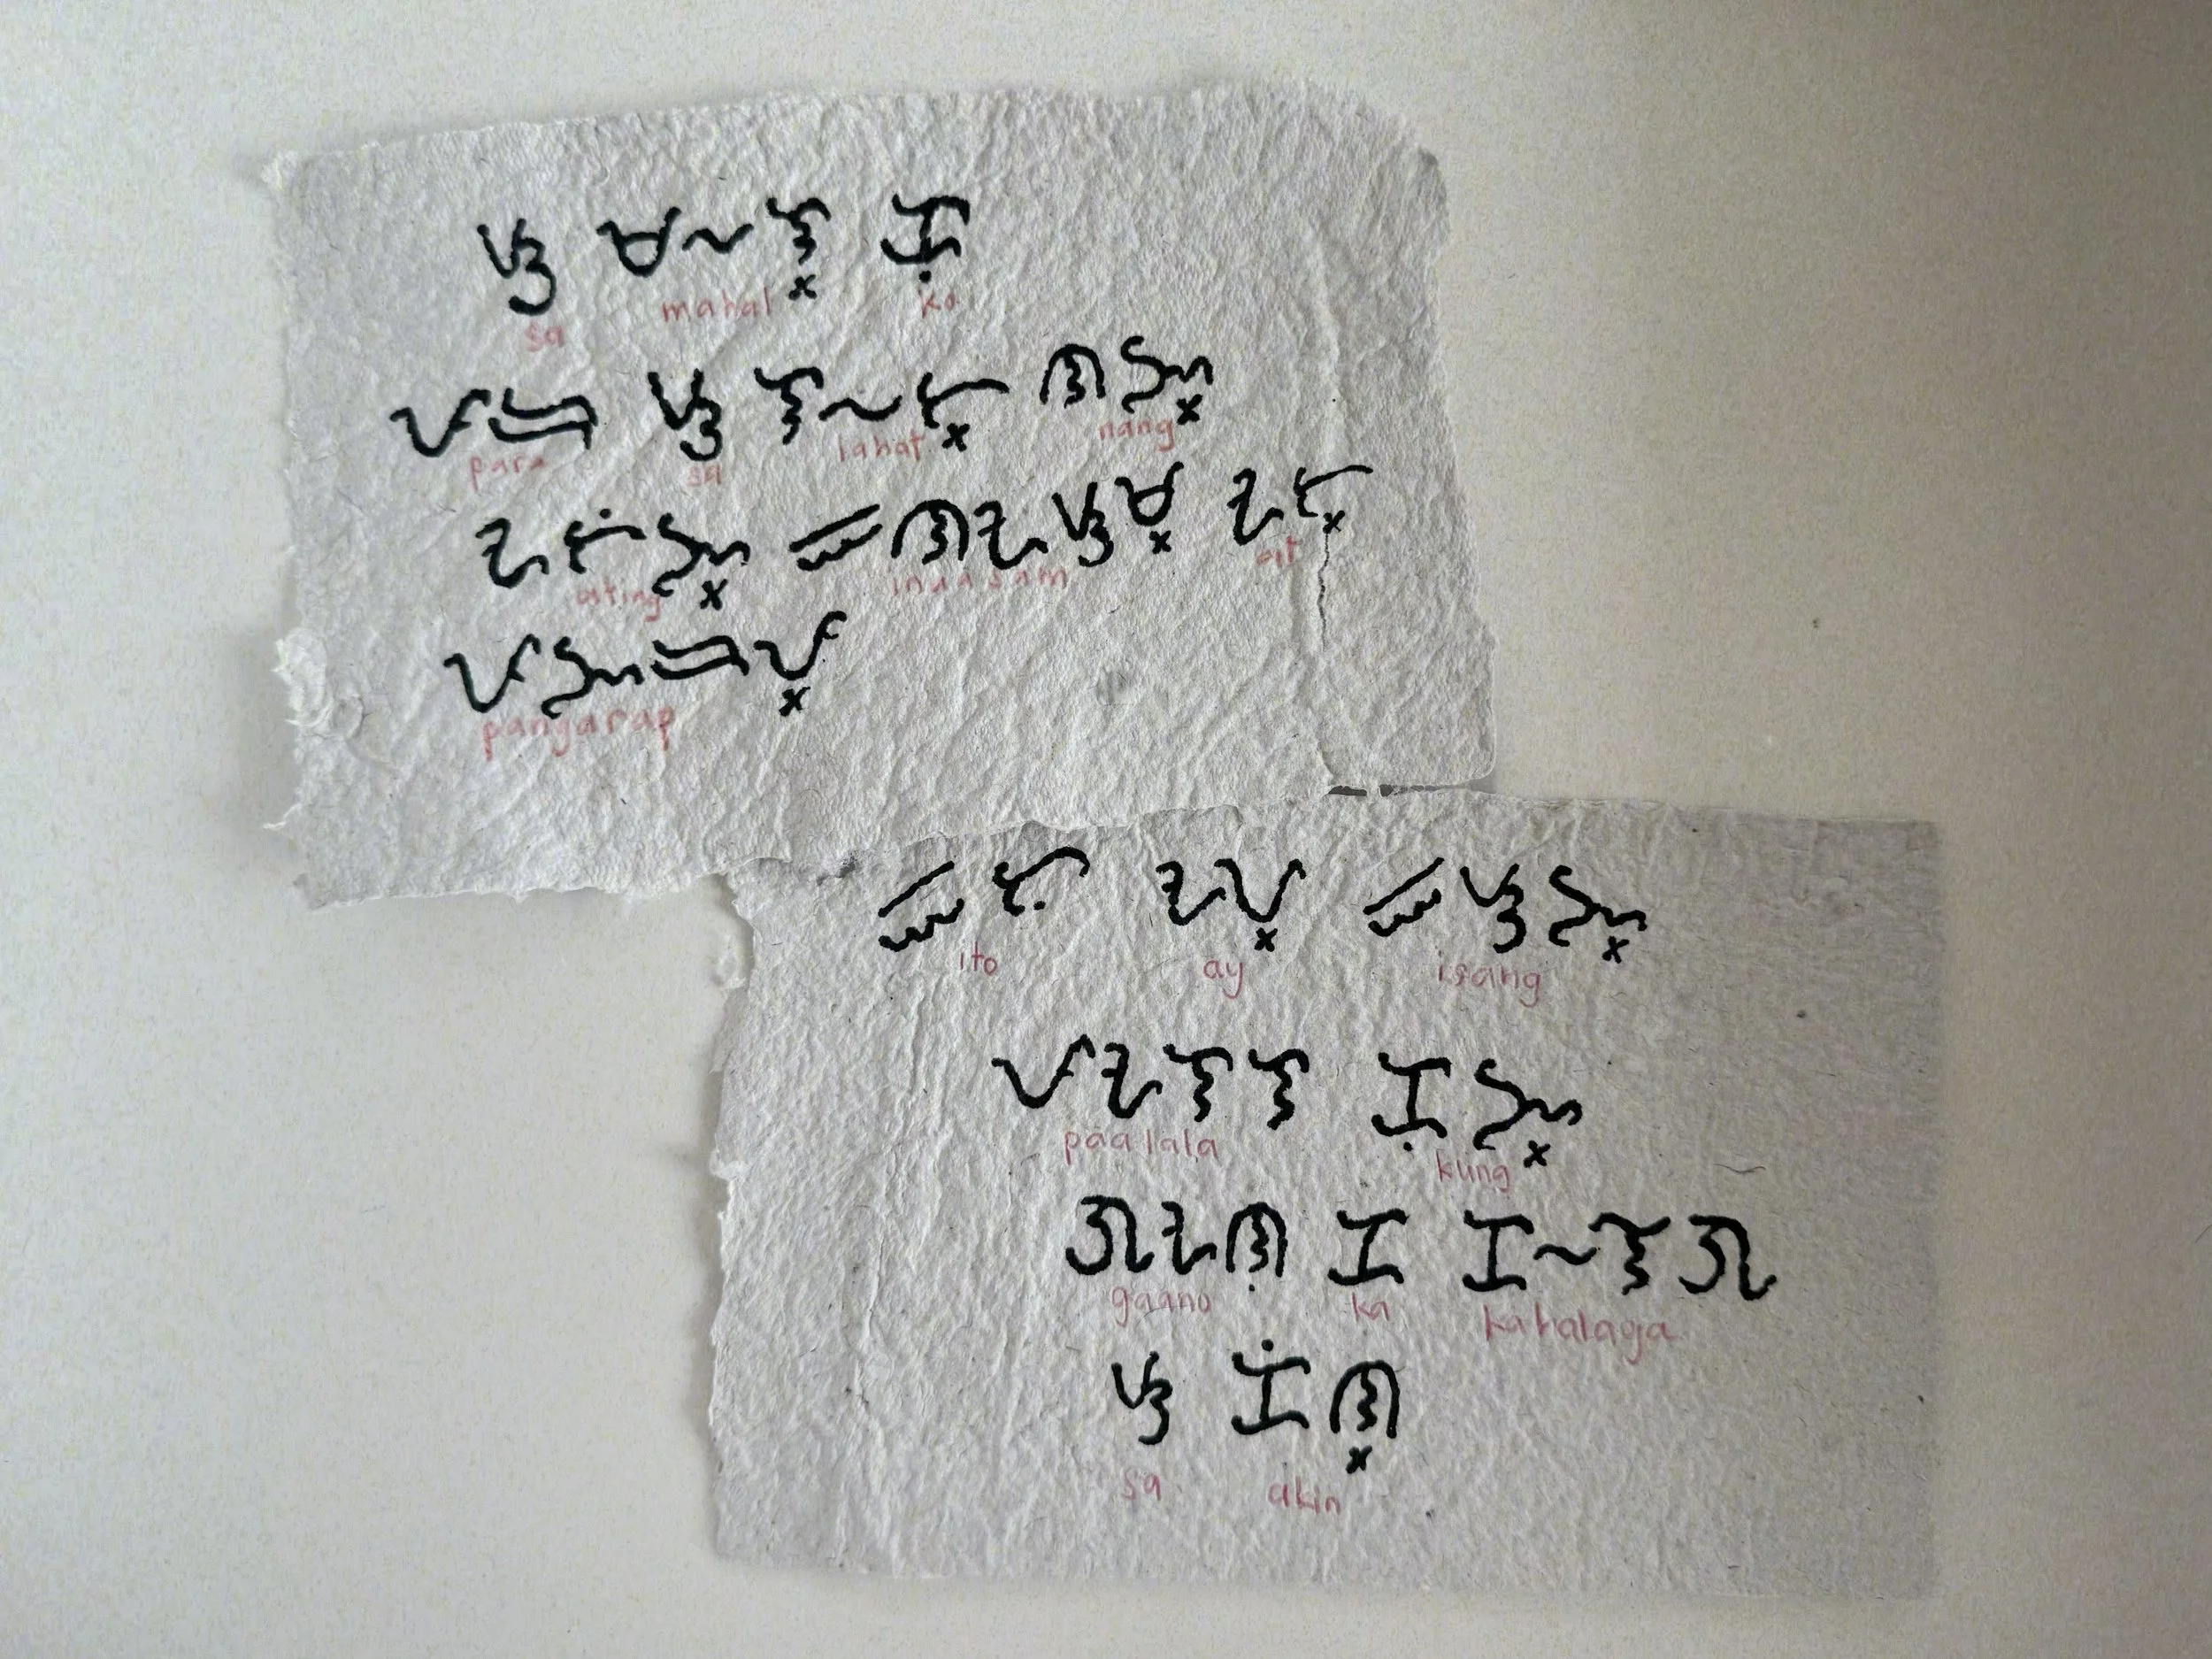 ᜐ ᜋᜑᜎ᜔ ᜃᜓ
sa mahal ko
ᜉᜇ ᜐ ᜎᜑᜆ᜔ ᜈᜅ᜔
para sa lahat nang
ᜀᜆᜒᜅ᜔ ᜁᜈᜀᜐᜋ᜔ ᜀᜆ᜔
ating inaasam at
ᜉᜅᜇᜉ᜔
pangarap
ᜁᜆᜓ ᜀᜌ᜔ ᜁᜐᜅ᜔
ito ay isang
ᜉᜀᜎᜎ ᜃᜓᜅ᜔
paalala kung
ᜄᜀᜈᜓ ᜃ ᜃᜑᜎᜄ
gaano ka kahalaga
ᜐ ᜃᜒᜈ᜔
sa akin